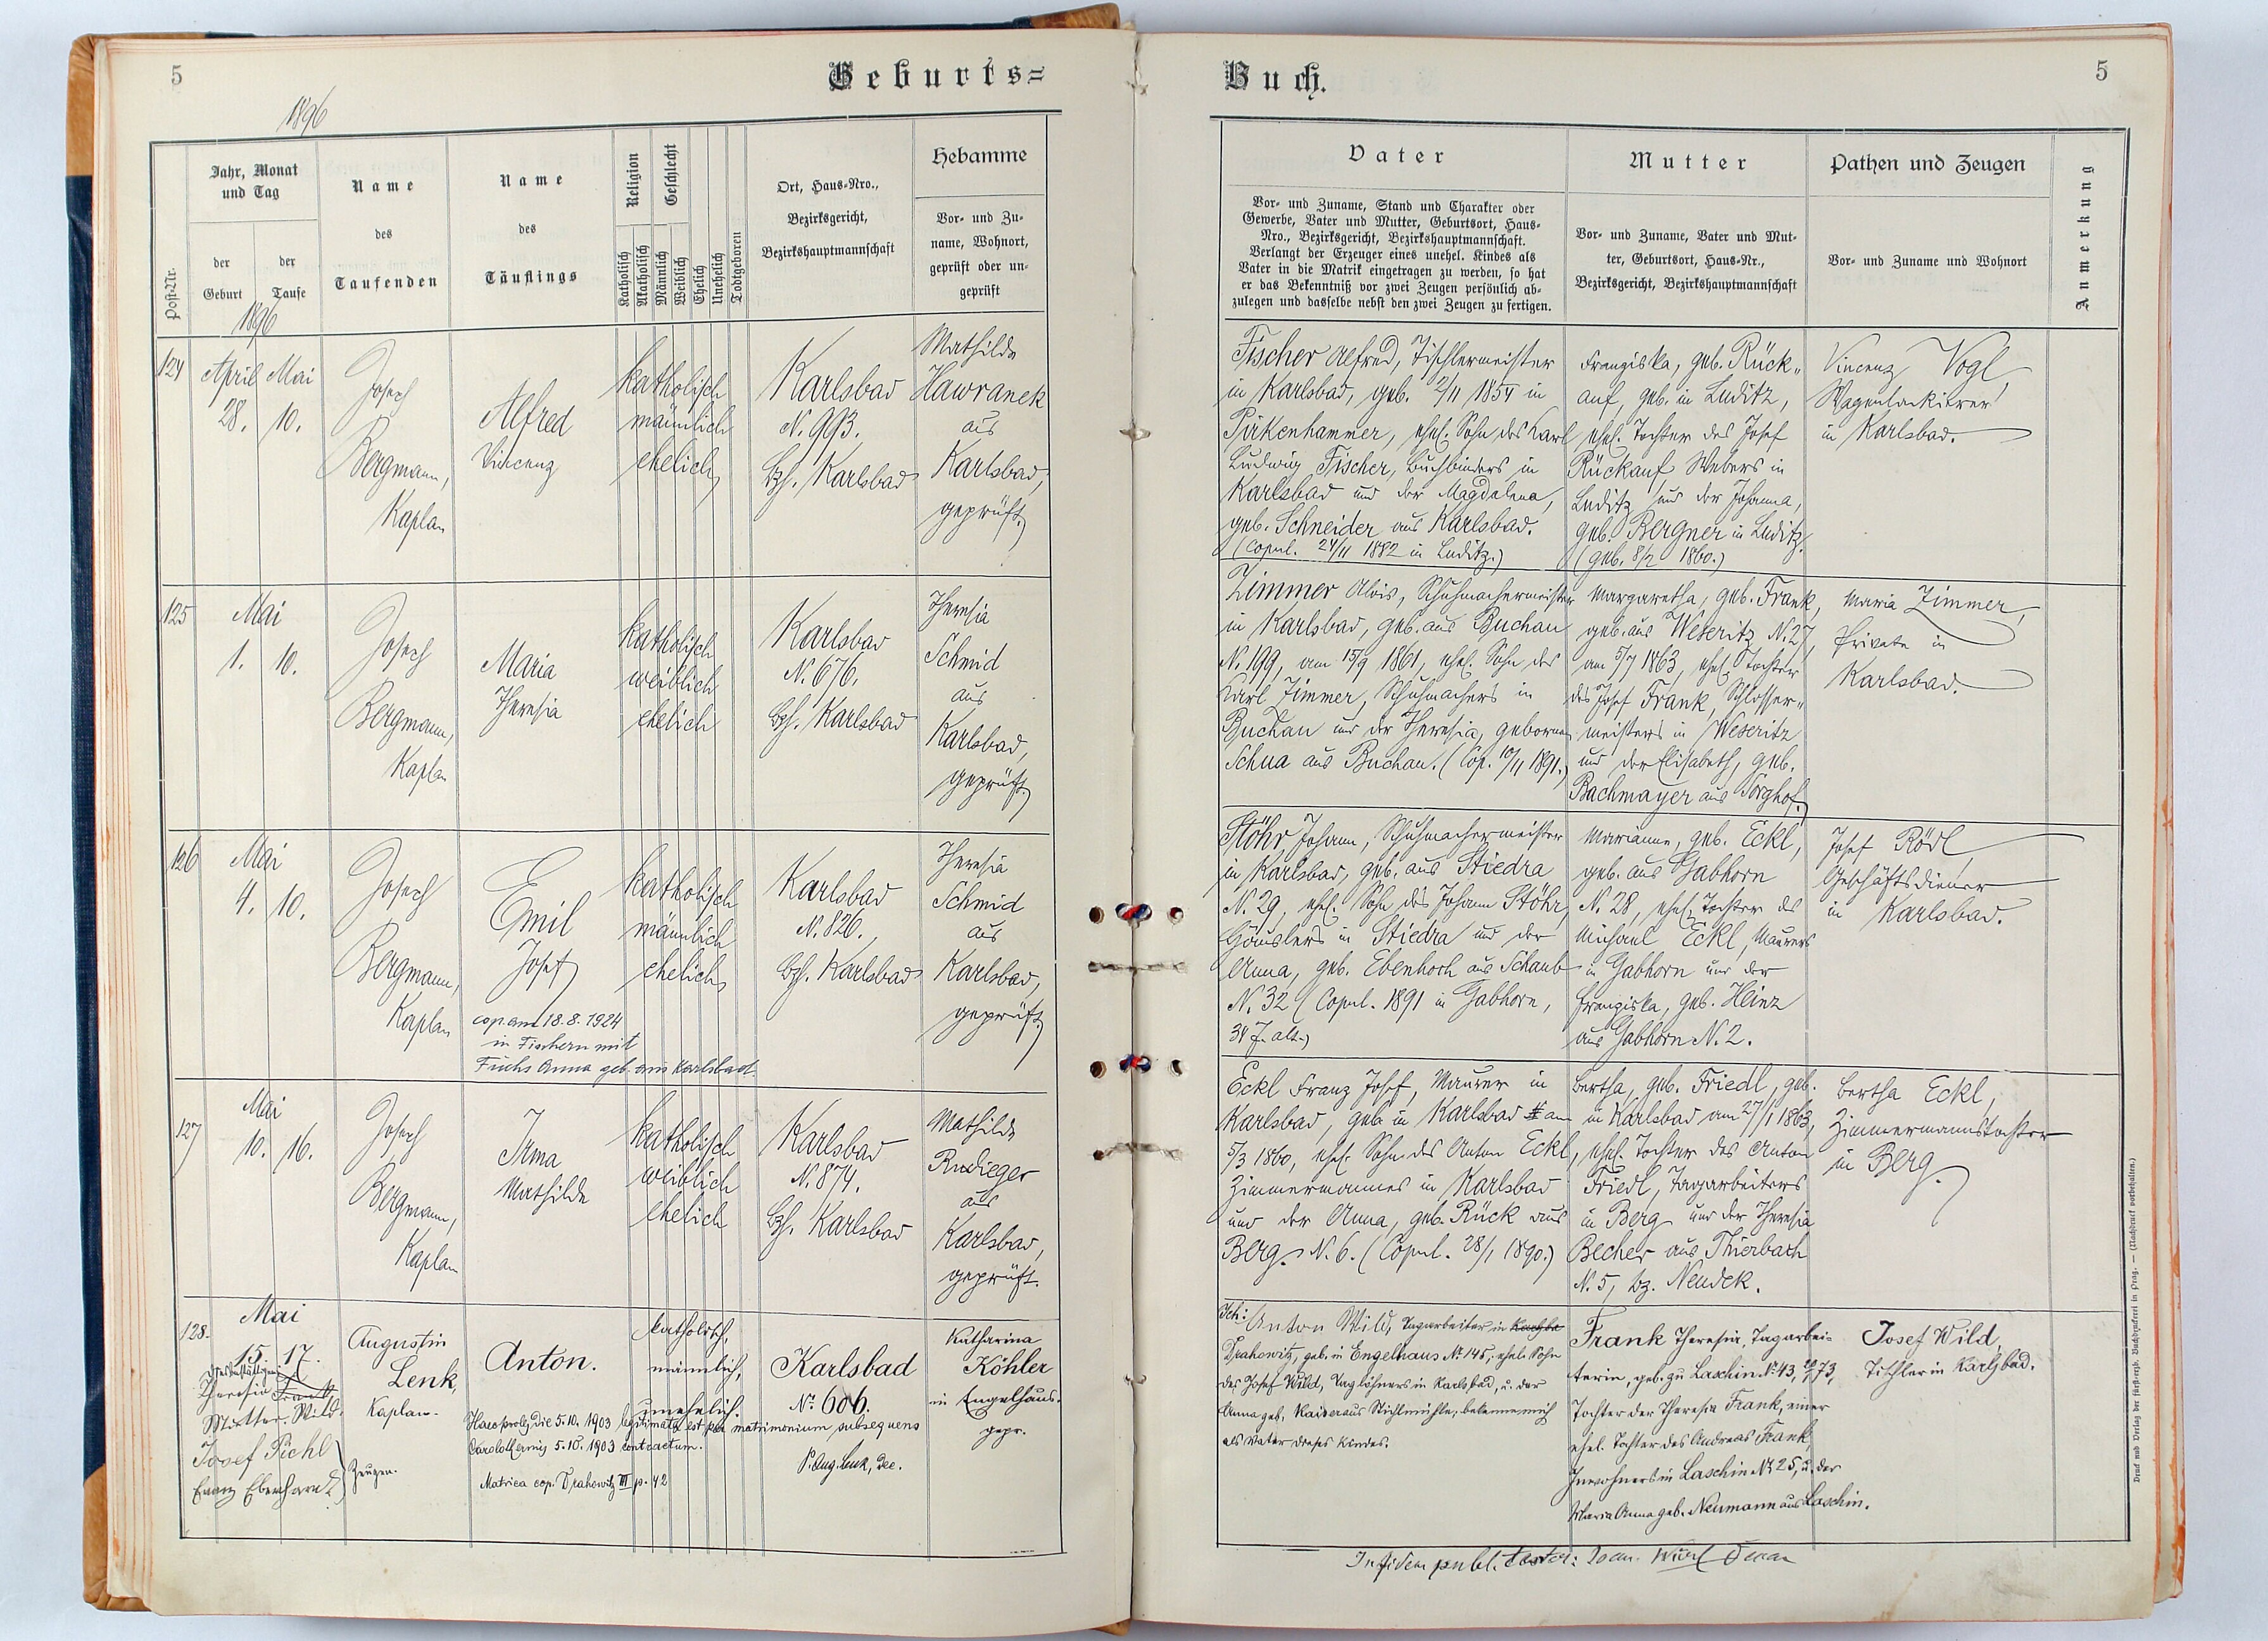 5
Geburts=
1896
Post-Nr.
Jahr, Monat
und Tag
der
Geburt
der
Taufe
1896
Name
des
Taufenden
Name
des
Täuflings
Religion
Geschlecht
Katholisch
Akatholisch
Männlich
Weiblich
Ehelich
Unehelich
Todtgeboren
Ort, Haus-Nro.,
Bezirksgericht,
Bezirkshauptmannschaft
Hebamme
Vor- und Zu-
name, Wohnort,
geprüft oder un-
geprüft
124
April Mai
28. 10.
Josef
Bergmann,
Kaplan
Alfred
Vincenz
katholisch
männlich
ehelich
Karlsbad
N. 993.
Bzh. Karlsbad
Mathilde
Hawranek
aus
Karlsbad,
geprüft.
125
Mai
1. 10.
Josef
Bergmann,
Kaplan
Maria
Theresia
katholisch
weiblich
ehelich
Karlsbad
N. 676.
Bzh. Karlsbad
Theresia
Schmid
aus
Karlsbad,
geprüft.
126
Mai
4. 10.
Josef
Bergmann,
Kaplan
Emil
Josef
cop. am 18.8.1924
in Fischern mit
Fuchs Anna geb. aus Karlsbad.
katholisch
männlich
ehelich
Karlsbad
N. 826.
Bzh. Karlsbad
Theresia
Schmid
aus
Karlsbad,
geprüft.
127
Mai
10. 16.
Josef
Bergmann,
Kaplan
Irma
Mathilde
katholisch
weiblich
ehelich
Karlsbad
N. 874.
Bzh. Karlsbad
Mathilde
Rudieger
aus
Karlsbad,
geprüft.
128.
Mai
15. 17.
Theresia Frank
Mutter. Wild.
Josef Pichl
Franz Eberhardt
Zeugen.
Augustin
Lenk,
Kaplan.
Anton.
katholisch,
männlich,
unehelich.
Karlsbad
No. 606.
Katharina
Köhler
in Engelhaus.
gepr.
Haec proles die 5.10.1903 legitimata est per matrimonium subsequens
5.10.1903 contractum.
P. Aug. Lenk, Dec.
Matrica cop. Drahowitz III p. 42
Buch.
5
Vater
Vor- und Zuname, Stand und Charakter oder
Gewerbe, Vater und Mutter, Geburtsort, Haus-
Nro., Bezirksgericht, Bezirkshauptmannschaft.
Verlangt der Erzeuger eines unehel. Kindes als
Vater in die Matrik eingetragen zu werden, so hat
er das Bekenntniß vor zwei Zeugen persönlich ab-
zulegen und dasselbe nebst den zwei Zeugen zu fertigen.
Mutter
Vor- und Zuname, Vater und Mut-
ter, Geburtsort, Haus-Nr.,
Bezirksgericht, Bezirkshauptmannschaft
Pathen und Zeugen
Vor- und Zuname und Wohnort
Anmerkung
Fischer Alfred, Tischlermeister
in Karlsbad, geb. 2/11 1854 in
Pirkenhammer, ehel. Sohn des Karl
Ludwig Fischer, Buchbinders in
Karlsbad und der Magdalena,
geb. Schneider aus Karlsbad.
(Copul. 24/11 1882 in Luditz.)
Franziska, geb. Rück-
auf, geb. in Luditz,
ehel. Tochter des Josef
Rückauf, Webers in
Luditz und der Johanna,
geb. Bergner in Luditz.
(geb. 8/2 1860.)
Vincenz Vogl,
Wagenlackierer
in Karlsbad.
Zimmer Alois, Schuhmachermeister
in Karlsbad, geb. aus Buchau
N. 199, am 15/9 1861, ehel. Sohn des
Karl Zimmer, Schuhmachers in
Buchau und der Theresia, geborenen
Schua aus Buchau. (Cop. 10/11 1891.)
Margaretha, geb. Frank,
geb. aus Weseritz N. 27,
am 5/7 1863, ehel. Tochter
des Josef Frank, Schlosser-
meisters in Weseritz
und der Elisabeth, geb.
Bachmayer aus Sorghof.
Maria Zimmer,
Private in
Karlsbad.
Stöhr Johann, Schuhmachermeister
in Karlsbad, geb. aus Stiedra
N. 29, ehel. Sohn des Johann Stöhr,
Häuslers in Stiedra und der
Anna, geb. Ebenhoch aus Schaub
N. 32 (Copul. 1891 in Gabhorn,
34 J. alt.)
Marianne, geb. Eckl,
geb. aus Gabhorn
N. 28, ehel. Tochter des
Michael Eckl, Maurers
in Gabhorn und der
Franziska, geb. Heinz
aus Gabhorn N. 2.
Josef Rödl,
Geschäftsdiener
in Karlsbad.
Eckl Franz Josef, Maurer in
Karlsbad, geb. in Karlsbad am
5/3 1860, ehel. Sohn des Anton Eckl,
Zimmermannes in Karlsbad
und der Anna, geb. Rück aus
Berg N. 6. (Copul. 28/1 1890.)
Bertha, geb. Friedl, geb.
in Karlsbad am 27/1 1863,
ehel. Tochter des Anton
Friedl, Tagarbeiters
in Berg und der Theresia
Becher aus Thierbach
N. 5, bz. Neudek.
Bertha Eckl,
Zimmermannstochter
in Berg.
Ich: Anton Wild, Tagarbeiter in
Drahowitz, geb. in Engelhaus No. 145, ehel. Sohn
des Josef Wild, Taglöhners in Karlsbad, u. der
Anna geb. Kaiser aus Stichlmühle, bekenne mich
als Vater dieses Kindes.
Frank Theresia, Tagarbei-
terin, geb. zu Laschin No. 43, 73,
Tochter der Theresia Frank, einer
ehel. Tochter des Andreas Frank,
Inwohners in Laschin No. 25, u. der
Maria Anna geb. Neumann aus Laschin.
Josef Wild,
Tischler in Karlsbad.
In fidem publ. testor: Joan. Würl Decan
Druck und Verlag der fürst-ergb. Buchdruckerei in Prag. — (Nachdruck vorbehalten.)